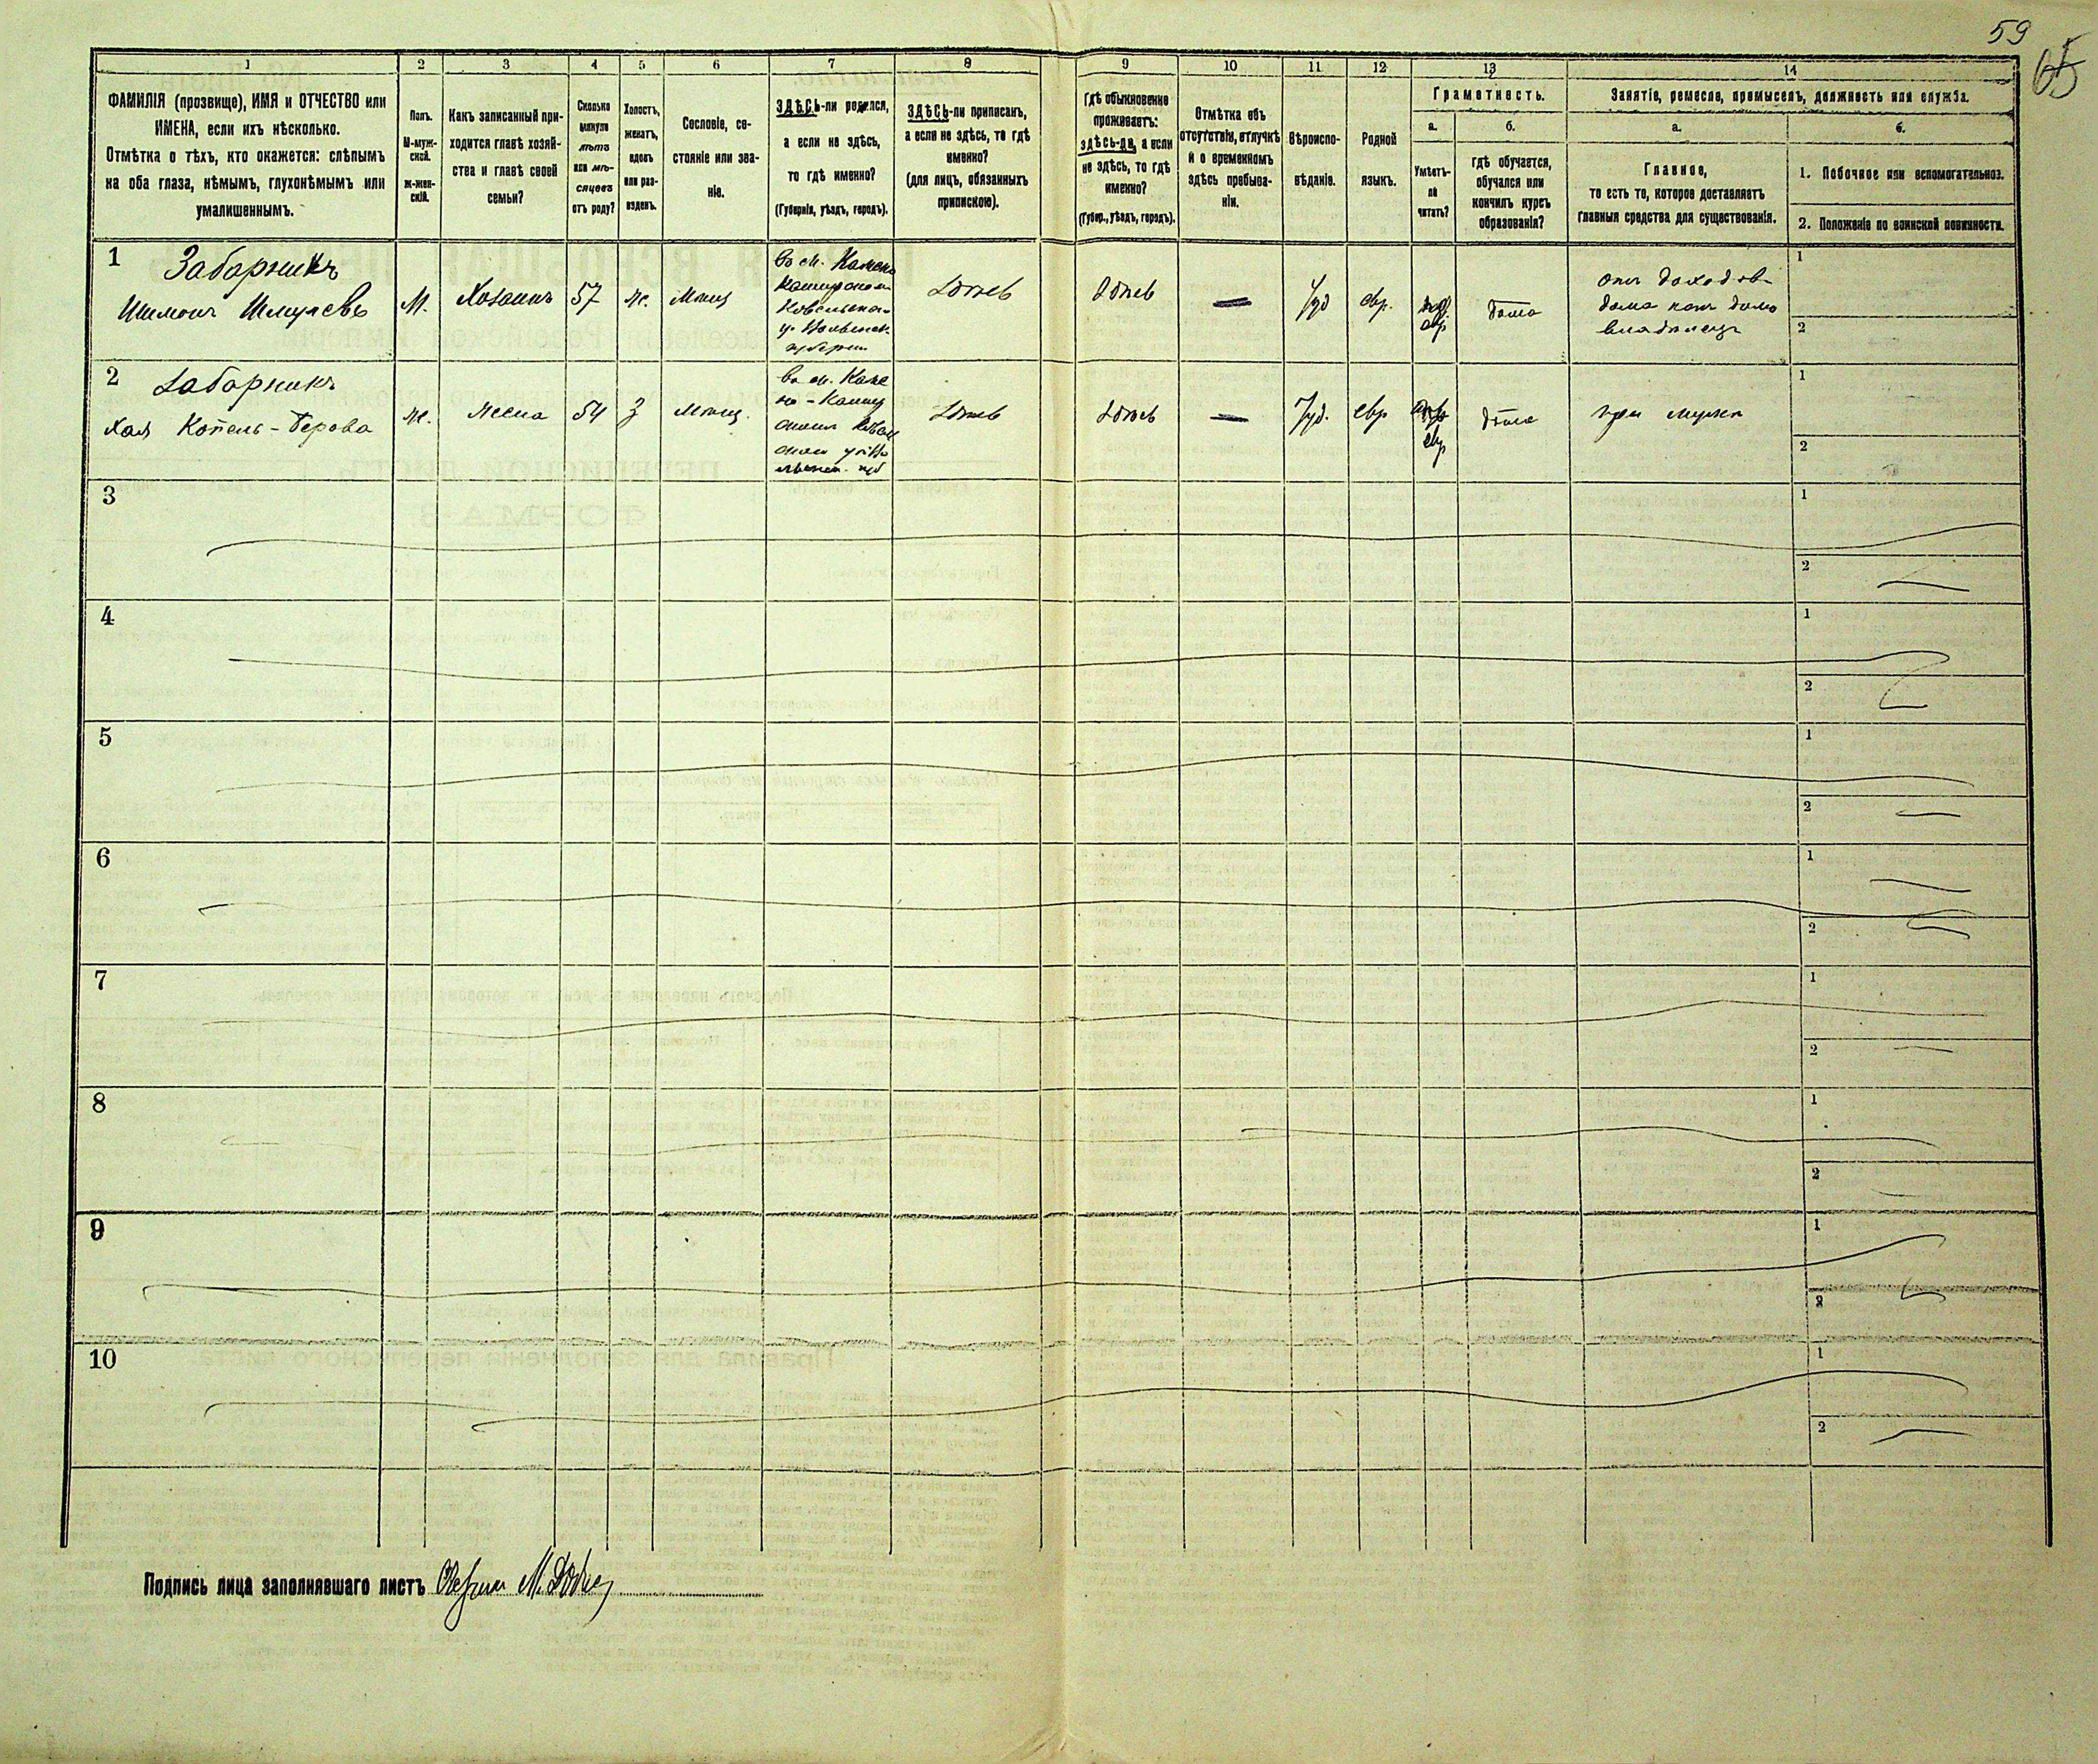 59
65
1
2
3
4
5
6
7
8
9
10
11
12
13
14
ФАМИЛІЯ (прозвище), ИМЯ и ОТЧЕСТВО или
ИМЕНА, если ихъ нѣсколько.
Отмѣтка о тѣхъ, кто окажется: слѣпымъ
на оба глаза, нѣмымъ, глухонѣмымъ или
умалишеннымъ.
Полъ.
М-муж-
ской.
ж-жен-
скій.
Какъ записанный при-
ходится главѣ хозяй-
ства и главѣ своей
семьи?
Сколько
минуло
лѣтъ
или мѣ-
сяцевъ
отъ роду?
Холостъ,
женатъ,
вдовъ
или раз-
веденъ.
Сословіе, со-
стояніе или зва-
ніе.
ЗДѢСЬ-ли родился,
а если не здѣсь,
то гдѣ именно?
(Губернія, уѣздъ, городъ).
ЗДѢСЬ-ли приписанъ,
а если не здѣсь, то гдѣ
именно?
(для лицъ, обязанныхъ
припискою).
Гдѣ обыкновенно
проживаетъ:
здѣсь-ли, а если
не здѣсь, то гдѣ
именно?
(Губер., уѣздъ, городъ).
Отмѣтка объ
отсутствіи, отлучкѣ
и о временномъ
здѣсь пребыва-
ніи.
Вѣроиспо-
вѣданіе.
Родной
языкъ.
Грамотность.
а.
Умѣетъ-
ли
читать?
б.
гдѣ обучается,
обучался или
кончилъ курсъ
образованія?
Занятіе, ремесло, промыселъ, должность или служба.
а.
Главное,
то есть то, которое доставляетъ
главныя средства для существованія.
б.
1. Побочное или вспомогательное.
2. Положеніе по воинской повинности.
1
Заборникъ
Шимонъ Шмулевъ
М.
Хозяинъ
57
ж.
Мѣщ
въ м. Камень
Каширском
Ковельскаго
у. Волынск
губерніи
Здѣсь
Здѣсь
—
Іуд
евр.
дома
отъ доходовъ
дома какъ домо
владѣлецъ
1
2
2
Заборникъ
Хая Копель-Берова
ж.
жена
54
З
Мѣщ.
въ м. Каме
Здѣсь
Здѣсь
—
Іуд.
евр
евр
дома
при мужѣ
1
2
3
1
2
4
1
2
5
1
2
6
1
2
7
1
2
8
1
2
9
1
2
10
1
2
Подпись лица заполнявшаго листъ